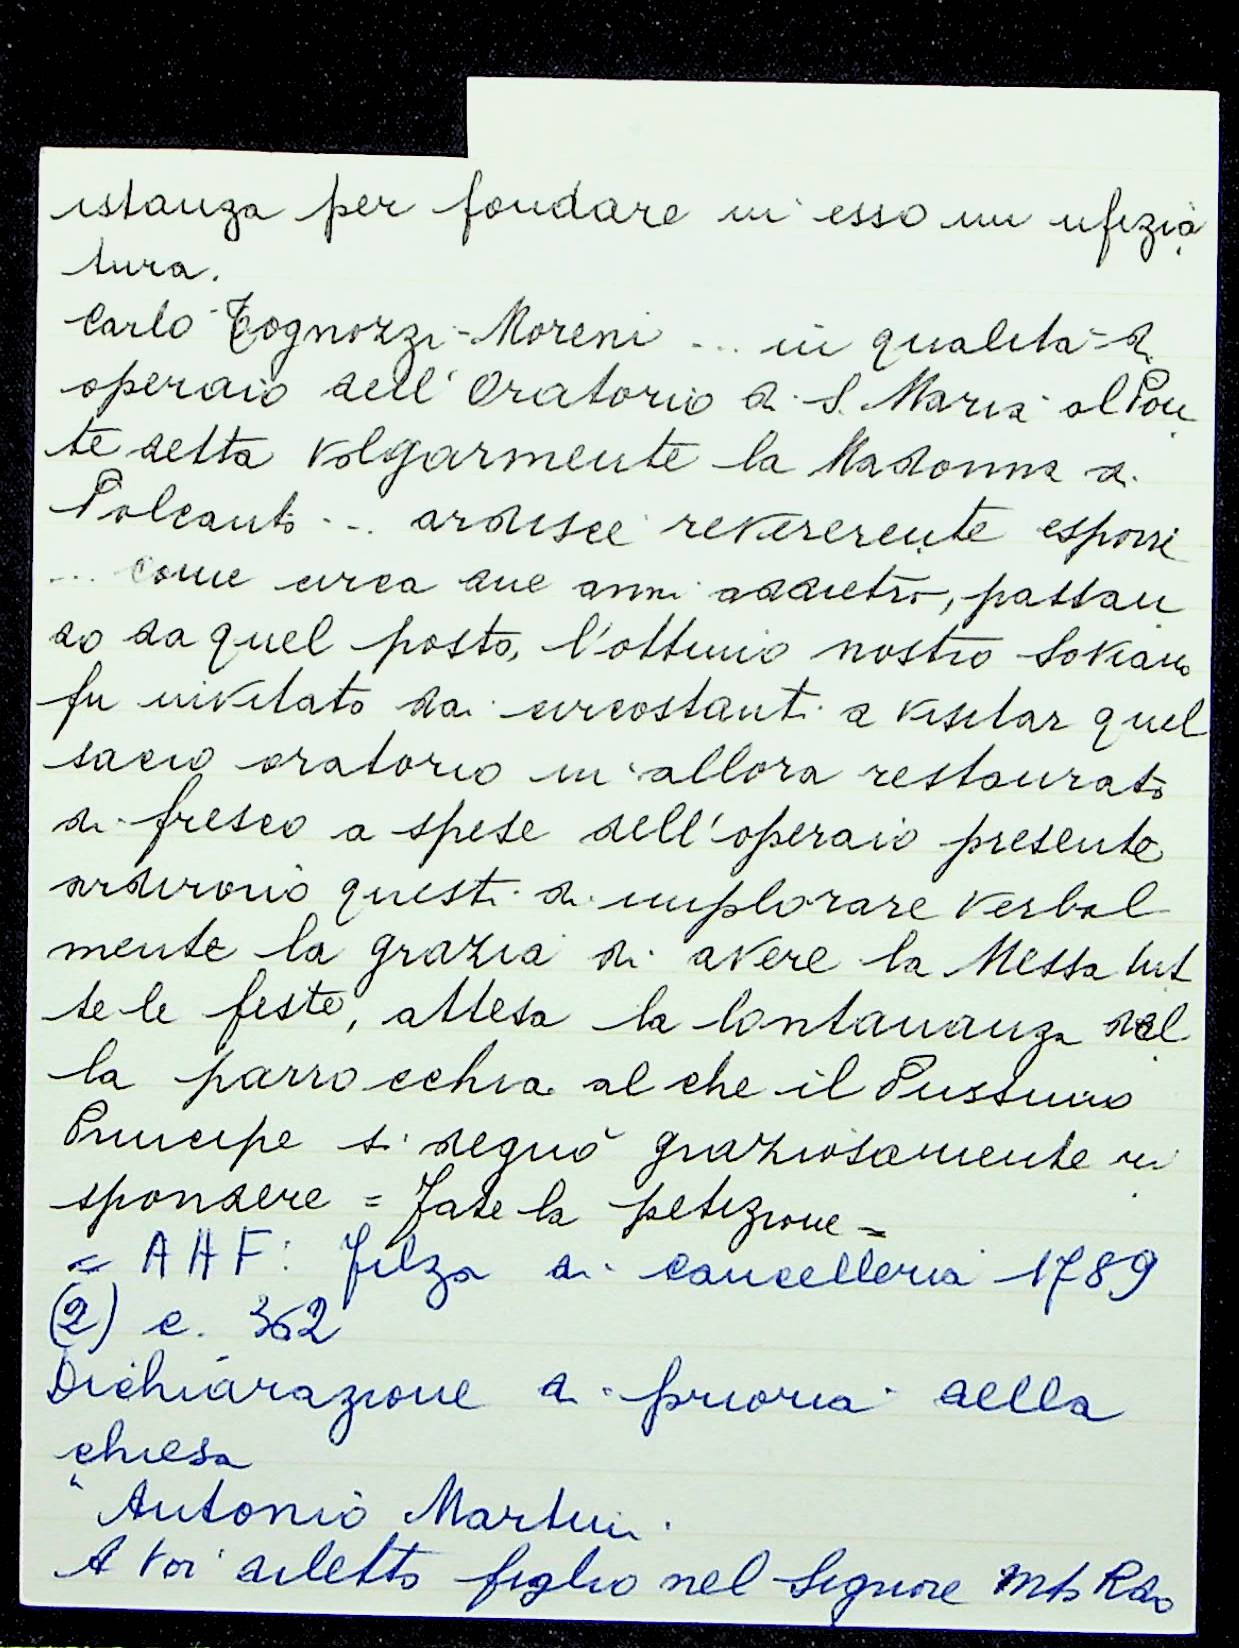 istanza per fondare in esso un ufizia
tura.
Carlo Tognozzi-Moreni ... in qualità di
operaio dell'Oratorio di S. Maria al Pon
te detta volgarmente la Madonna di
Polcanto ... ardisce revererente esporre
... come circa due anni addietro, passan
do da quel posto, l'ottimo nostro Sovrano
fu invitato dai circostanti a visitar quel
sacro oratorio in allora restaurato
di fresco a spese dell'operaio presente
ardirono questi di implorare verbal
mente la grazia di avere la Messa tut
te le feste, attesa la lontananza del
la parrocchia al che il Piissimo
Principe si degnò graziosamente ri
spondere = Fate la petizione =
= AAF: Filza di cancelleria 1789
(2) c. 362
Dichiarazione di prioria della
chiesa
"Antonio Martini.
A voi diletto figlio nel Signore Mto Rdo